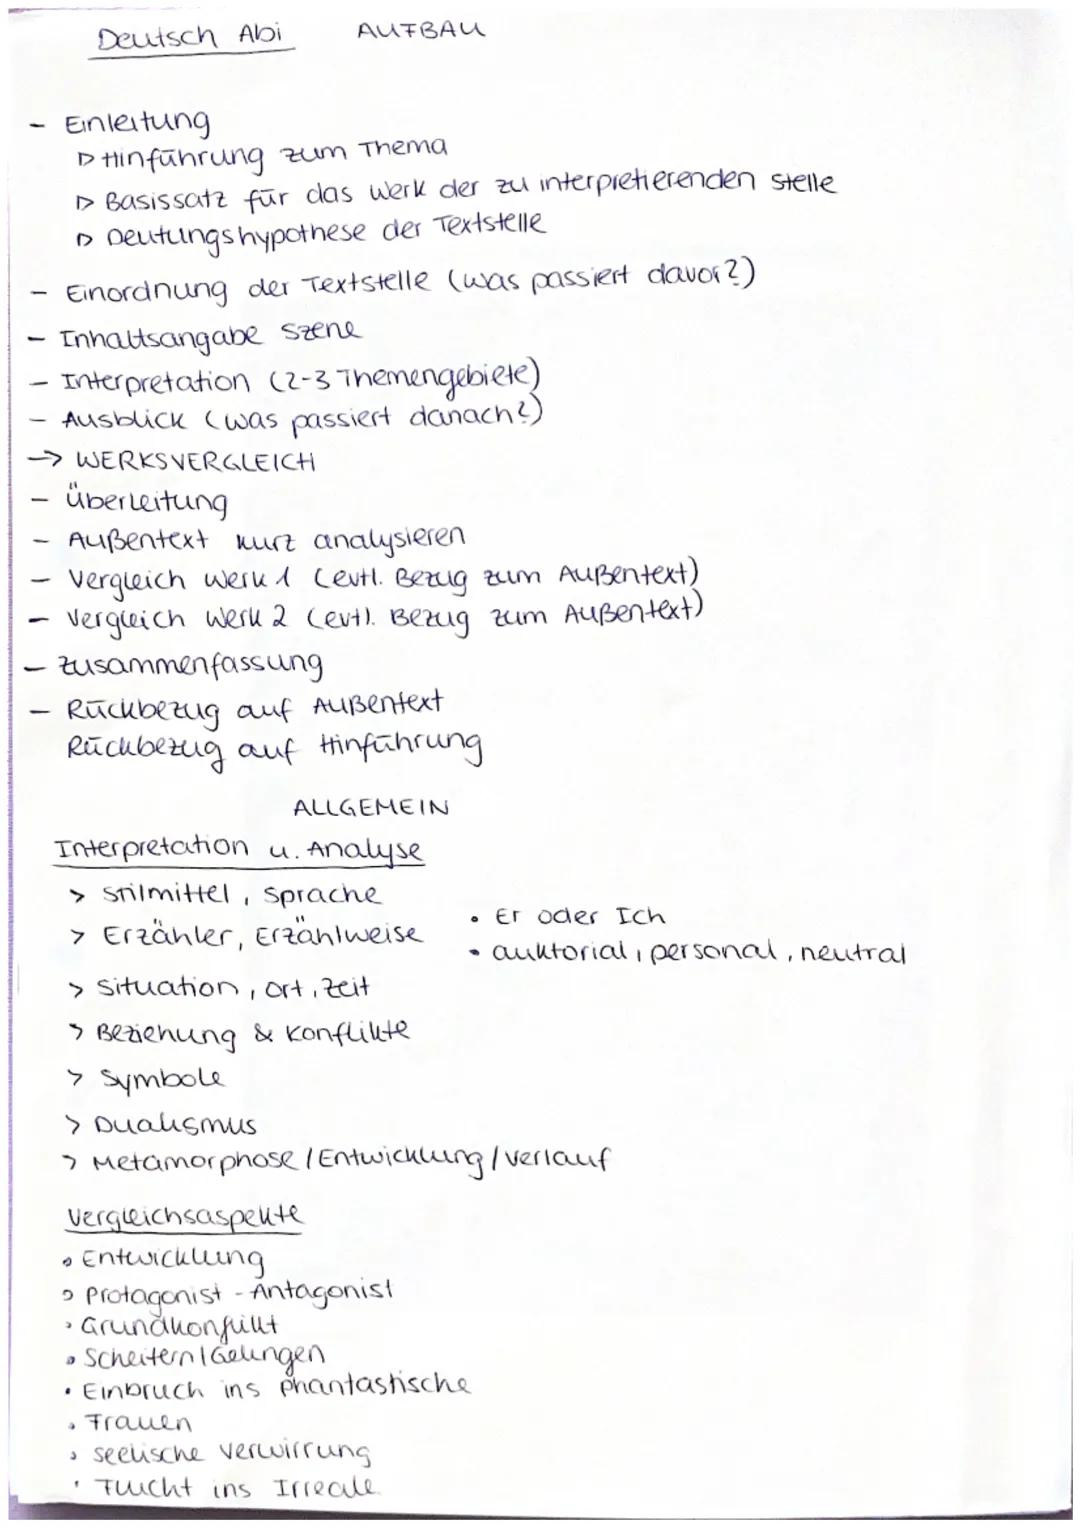 Deutsch Abi AUFBAU
- Einleitung
▷ Hinführung zum Thema
▷ Basissatz für das Werk der zu interpretierenden Stelle
▷ Deutungshypothese der Textstelle
- Einordnung der Textstelle (was passiert davor?)
- Inhaltsangabe Szene
- Interpretation (2-3 Themengebiete)
- Ausblick (was passiert danach?)
→ WERKSVERGLEICH
- Überleitung
- Außentext kurz analysieren
- Vergleich Werk 1 (evtl. Bezug zum Außentext)
- Vergleich Werk 2 (evtl. Bezug zum Außentext)
- Zusammenfassung
- Rückbezug auf Außentext
Rückbezug auf Hinführung
ALLGEMEIN
Interpretation u. Analyse
> Stilmittel, Sprache
> Erzähler, Erzählweise
• Er oder Ich
• auktorial, personal, neutral
> Situation, Ort, Zeit
> Beziehung & Konflikte
> Symbole
> Dualismus
> Metamorphose / Entwicklung / Verlauf
Vergleichsaspekte
• Entwicklung
• Protagonist - Antagonist
• Grundkonflikt
• Scheitern / Gelingen
• Einbruch ins phantastische
• Frauen
• seelische Verwirrung
• Flucht ins Irreale